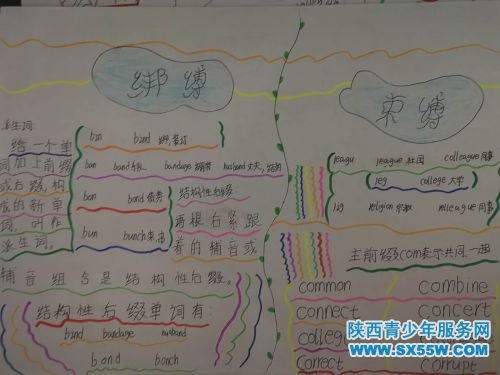 绑缚
派生词:
给一个单
词加上前缀
或后缀,构
成的新单
词,叫作
派生词。
bin bind 绑,装订
ban band 乐队 bandage 绷带 husband 丈夫
bon bond 债券
bun bunch 束,串
结构性后缀:
词根右紧跟
着的辅音或
辅音组合是结构性后缀。
结构性后缀单词有:
bind bandage husband
bond bonch
束缚
leagu league 社团 colleague 同事
leg college 大学
lig religion 宗教
主前缀com表示共同,一起
common combine
connect concert
colleg
correct corrupt
陕西青少年服务网
www.sx55w.com